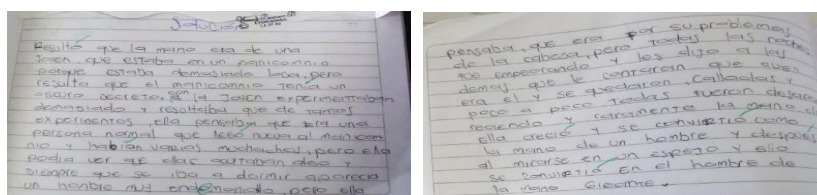 Solución
Resultó que la mano era de una
joven que estaba en un manicomnio
porque estaba demasiado loca, pero
resulta que el manicomnio tenía un
oscuro secreto. con la joven experimentaban
demasiado y resultaba que de tantos
experimentos, ella pensaba que era una
persona normal que llegó nueva al manicom
nio y habían varias muchachas, pero ella
podía ver que ellas ocultaban algo y
siempre que se iba a dormir aparecía
un hombre muy endemoniado, pero ella
pensaba, que era por su problemas
de la cabeza, pero todas las noches
empeorando y les dijo a las
demás que le contaran que quien
era él y se quedaron calladas y
poco a poco todas fueron desapa
reciendo y raramente la mano de
ella creció y se convirtió como
la mano de un hombre y después
al mirarse en un espejo y ella
se convirtió en el hombre de
la mano gigante.